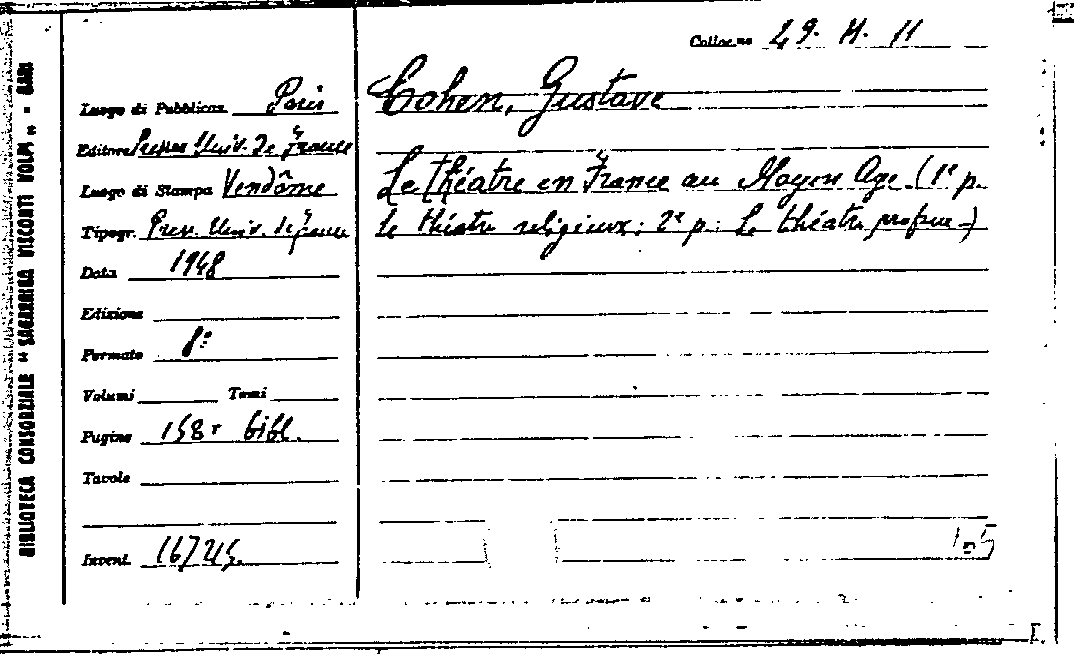 BIBLIOTECA CONSORZIALE "SAGARRIGA VISCONTI VOLPI" - BARI
Colloc.ne 49. H. 11
Luogo di Pubblicaz. Paris
Editore Presses Univ. de France
Luogo di Stampa Vendôme
Tipogr. Press. Univ. de France
Data 1948
Edizione
Formato 8º
Volumi Tomi
Pagine 158+ bibl.
Tavole
Invent. 16745
Cohen, Gustave
Le théatre en France au Moyen Age. (1e p.
le théatre religieux; 2e p: Le théatre profane-)